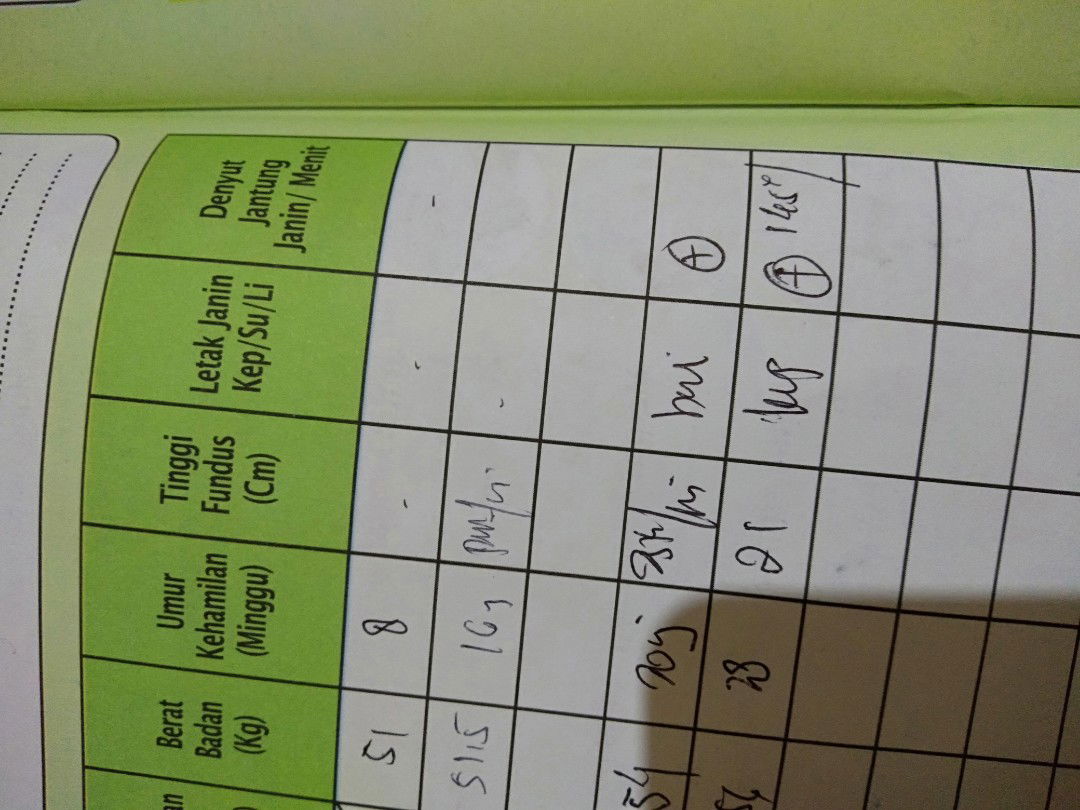 an
Berat
Badan
(Kg)
Umur
Kehamilan
(Minggu)
Tinggi
Fundus
(Cm)
Letak Janin
Kep/Su/Li
Denyut
Jantung
Janin/ Menit
51 8 - - -
51,5 16 -
54 +
28 21 + 145